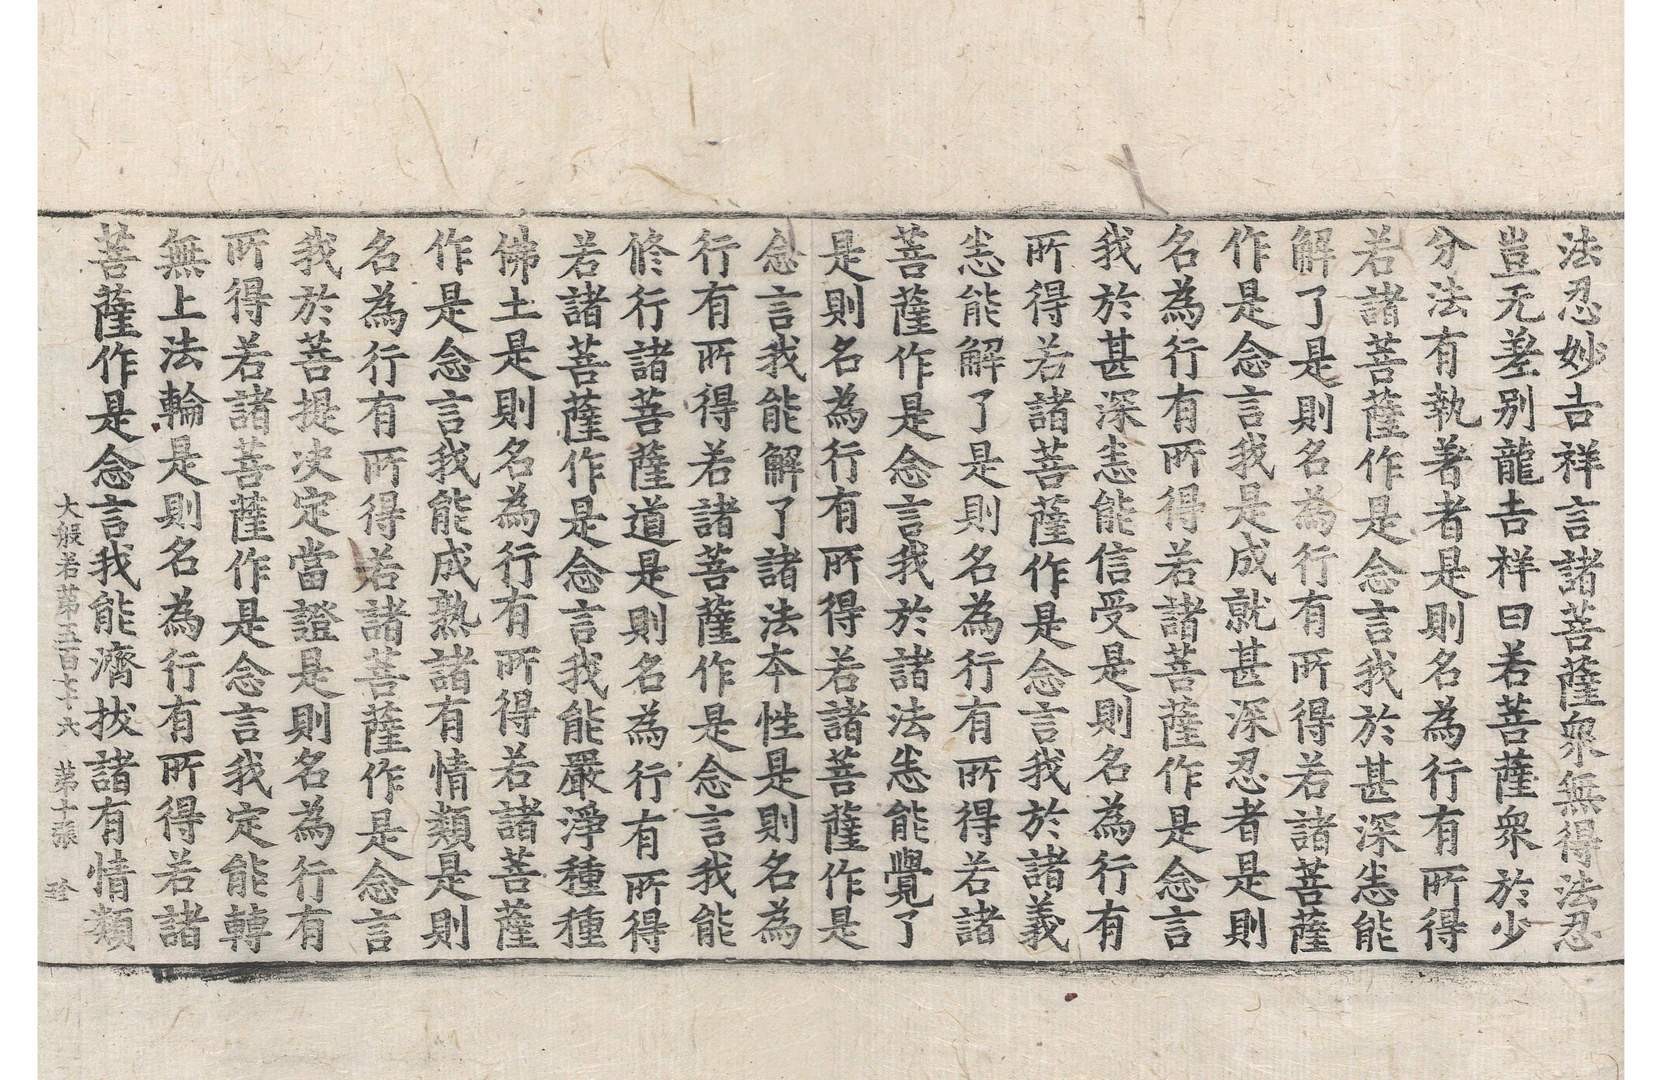 法忍妙吉祥言諸菩薩衆無得法忍
豈无差别龍吉祥曰若菩薩衆於少
分法有執著者是則名為行有所得
若諸菩薩作是念言我於甚深悉能
解了是則名為行有所得若諸菩薩
作是念言我是成就甚深忍者是則
名為行有所得若諸菩薩作是念言
我於甚深悉能信受是則名為行有
所得若諸菩薩作是念言我於諸義
悉能解了是則名為行有所得若諸
菩薩作是念言我於諸法悉能覺了
是則名為行有所得若諸菩薩作是
念言我能解了諸法本性是則名為
行有所得若諸菩薩作是念言我能
修行諸菩薩道是則名為行有所得
若諸菩薩作是念言我能嚴淨種種
佛土是則名為行有所得若諸菩薩
作是念言我能成熟諸有情類是則
名為行有所得若諸菩薩作是念言
我於菩提决定當證是則名為行有
所得若諸菩薩作是念言我定能轉
無上法輪是則名為行有所得若諸
菩薩作是念言我能濟拔諸有情類
大般若第五百七十六 第十張 珍